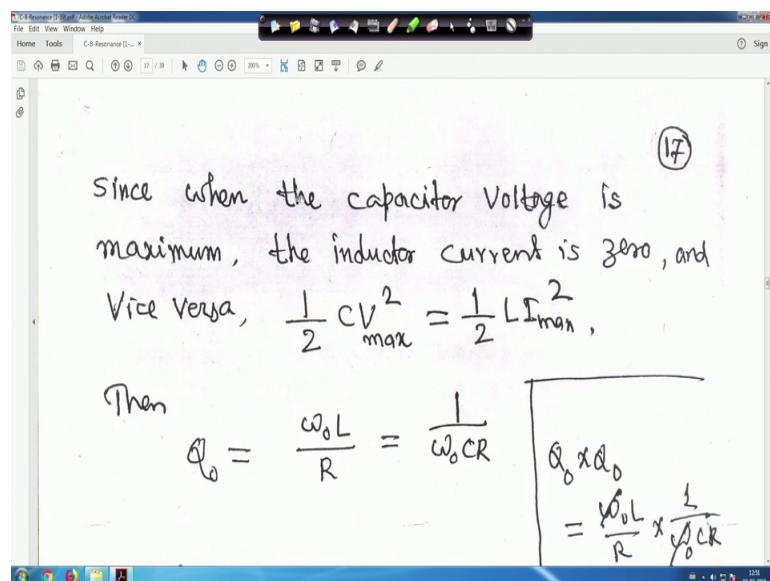 C-8-Resonance [1-39].pdf - Adobe Acrobat Reader DC
File Edit View Window Help
Home Tools C-8-Resonance [1-... ×
Sign
17 / 39
200%
17
Since when the capacitor voltage is
maximum, the inductor current is zero, and
Vice versa, 1/2 CV²max = 1/2 LI²max,
Then
Q₀ = ω₀L/R = 1/ω₀CR
Q₀ x Q₀
= ω₀L/R x 1/ω₀CR
12:51